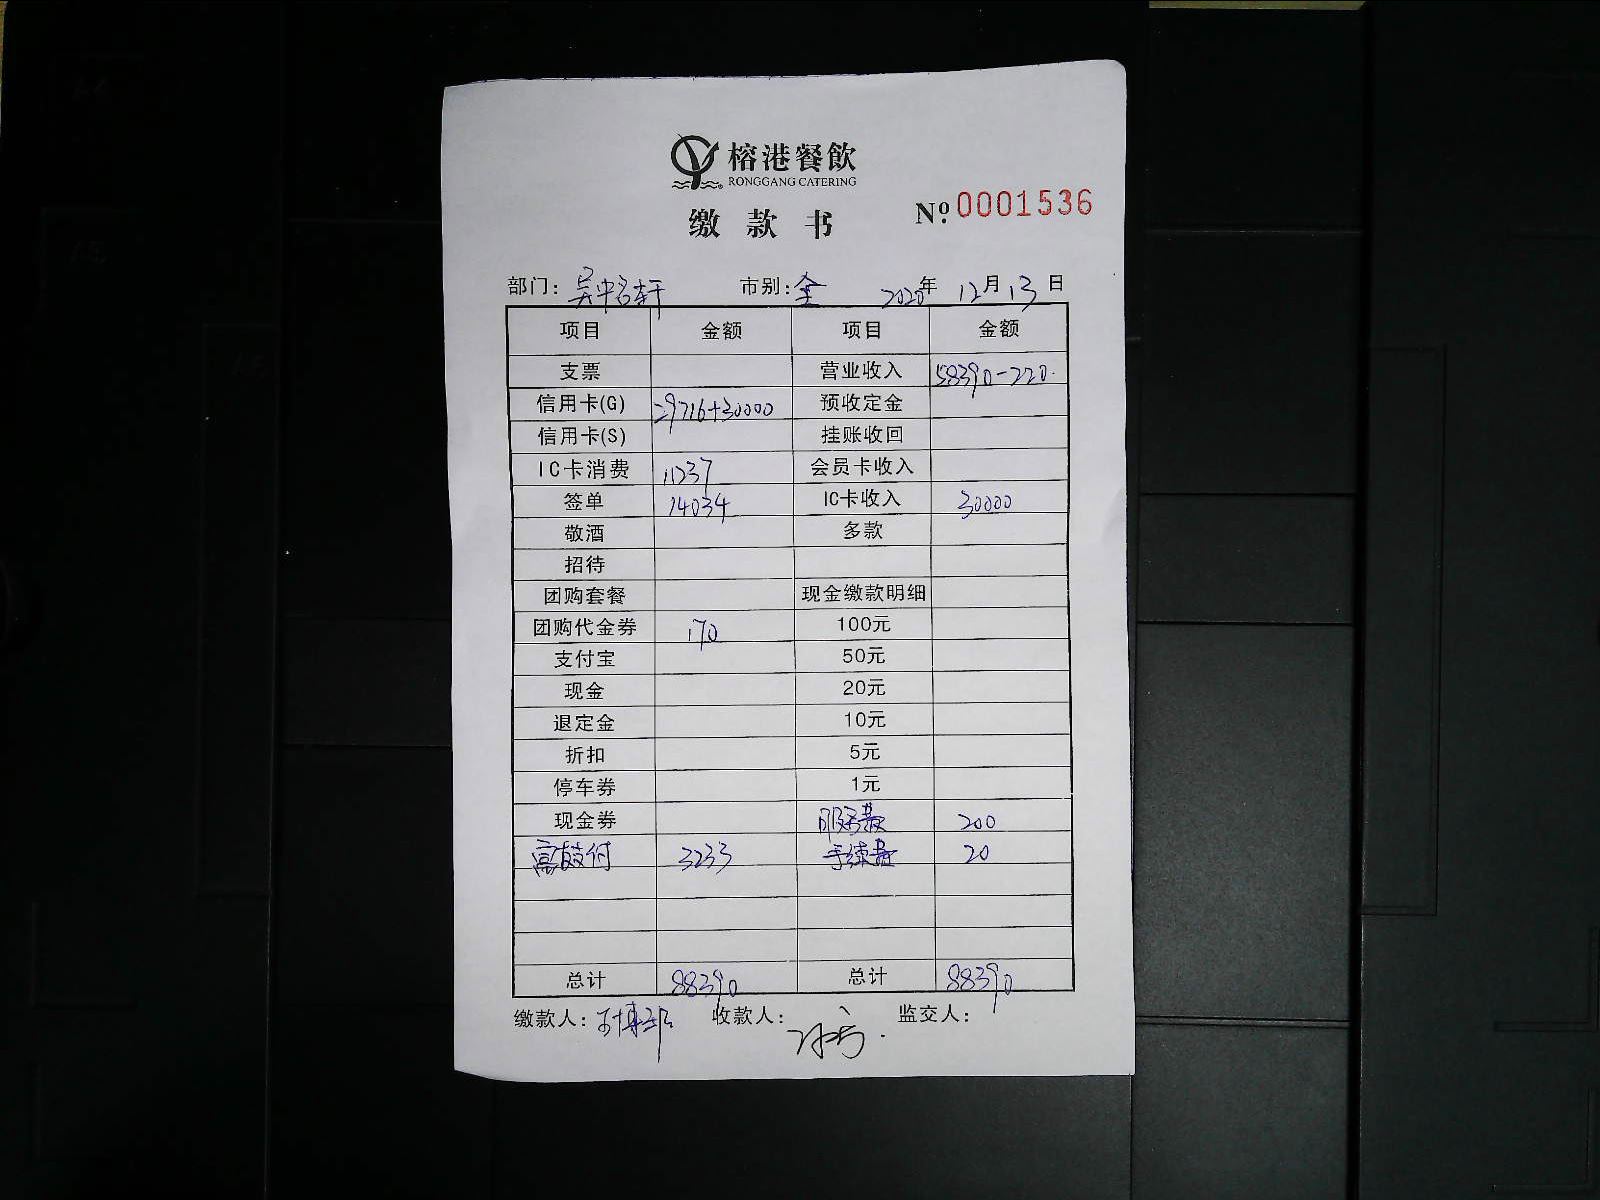 榕港餐飲
RONGGANG CATERING
缴款书
Nº 0001536
部门: 吴中名轩 市别: 全 2020年 12月 13日
项目 金额 项目 金额
支票 营业收入 58390-220
信用卡(G) 29716+30000 预收定金
信用卡(S) 挂账收回
IC卡消费 11237 会员卡收入
签单 14034 IC卡收入 30000
敬酒 多款
招待
团购套餐 现金缴款明细
团购代金券 170 100元
支付宝 50元
现金 20元
退定金 10元
折扣 5元
停车券 1元
现金券 服务费 200
3233 手续费 20
总计 88390 总计 88390
缴款人: 收款人: 监交人: